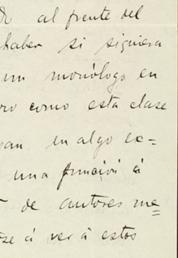 al frente del
haber si siguiera
un monólogo en
ro como esta clase
en algo ex=
una función á
de autores me=
se á ver á estos